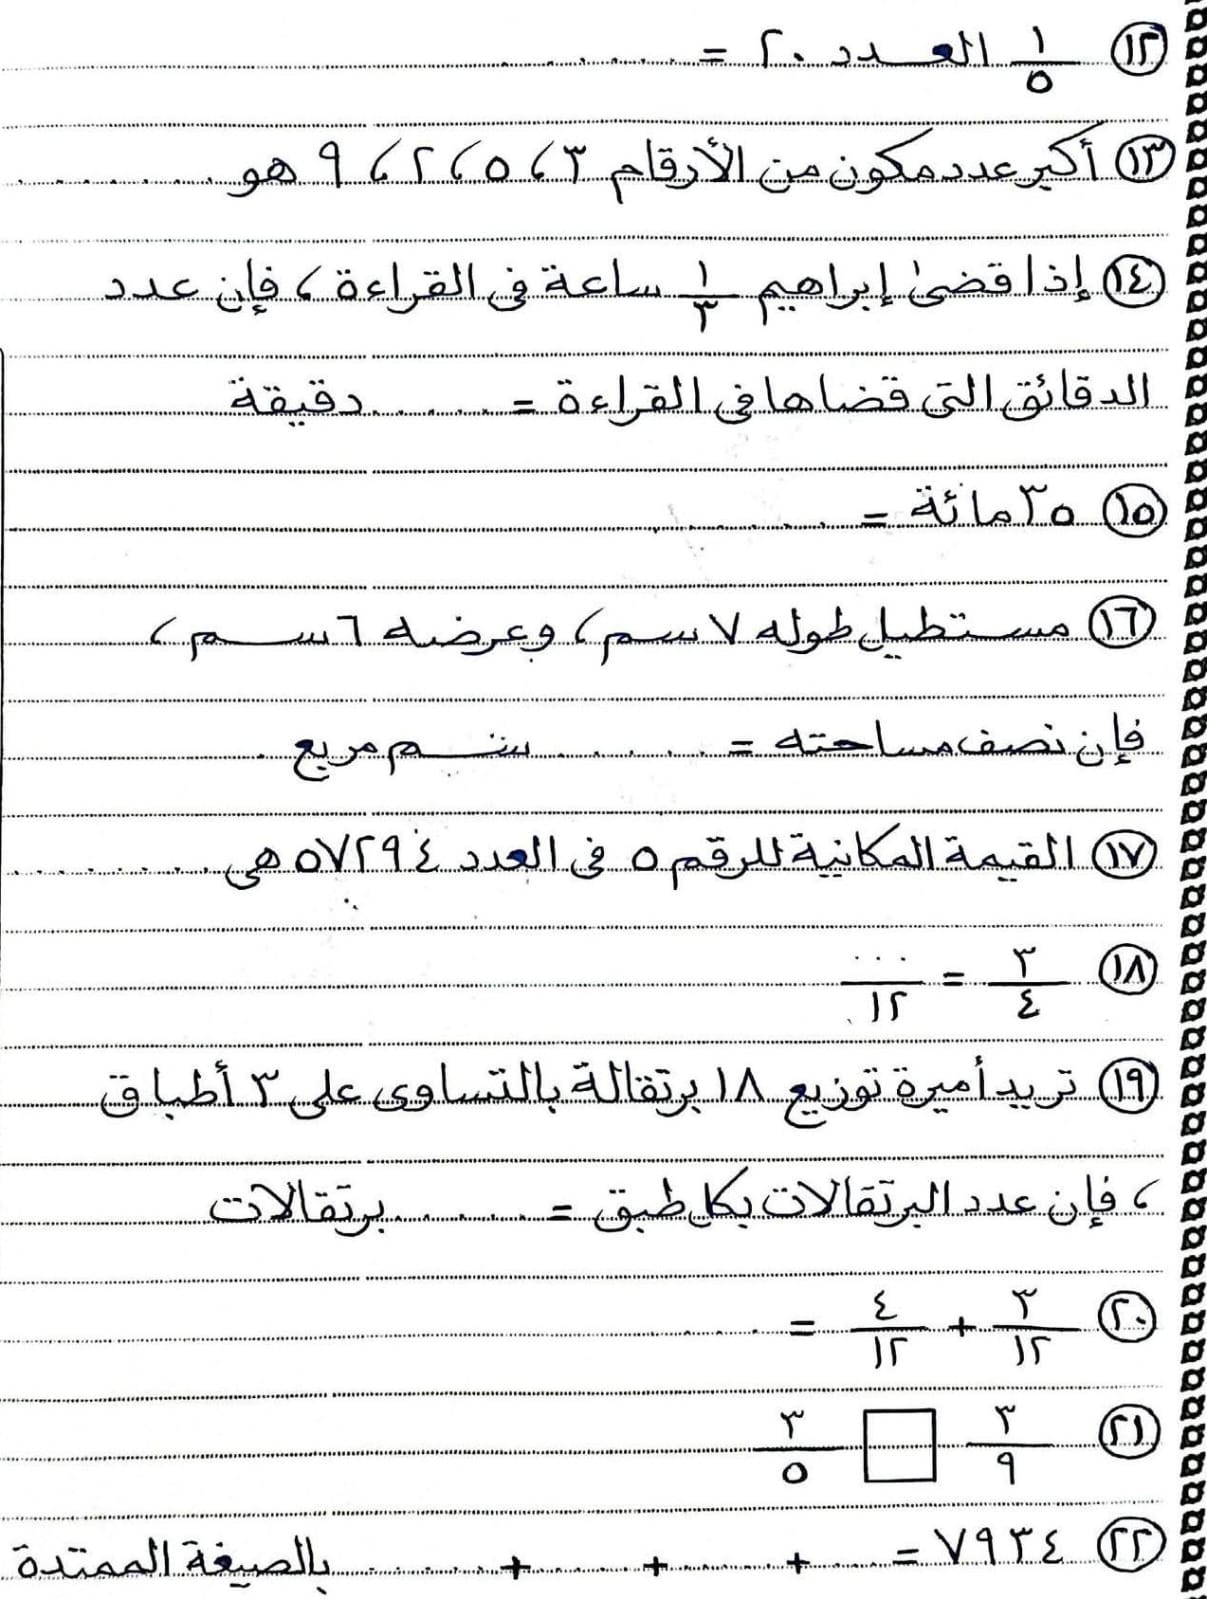 ١٢ ١/٥ العدد ٢٠ = ........
١٣ أكبر عدد مكون من الأرقام ٣ ، ٥ ، ٢ ، ٩ هو ........
١٤ إذا قضى إبراهيم ١/٣ ساعة فى القراءة ، فإن عدد
الدقائق التى قضاها فى القراءة = ...... دقيقة
١٥ ٣٥ مائة = ........
١٦ مستطيل طوله ٧ سم ، وعرضه ٦ سم ،
فإن نصف مساحته = ...... سم مربع
١٧ القيمة المكانية للرقم ٥ فى العدد ٥٧٢٩٤ هى ........
١٨ ٣/٤ = .../١٢
١٩ تريد أميرة توزيع ١٨ برتقالة بالتساوى على ٣ أطباق
، فإن عدد البرتقالات بكل طبق = ...... برتقالات
٢٠ ٣/١٢ + ٤/١٢ = ......
٢١ ٣/٩ □ ٣/٥
٢٢ ٧٩٣٤ = ...... + ...... + ...... + ...... بالصيغة الممتدة